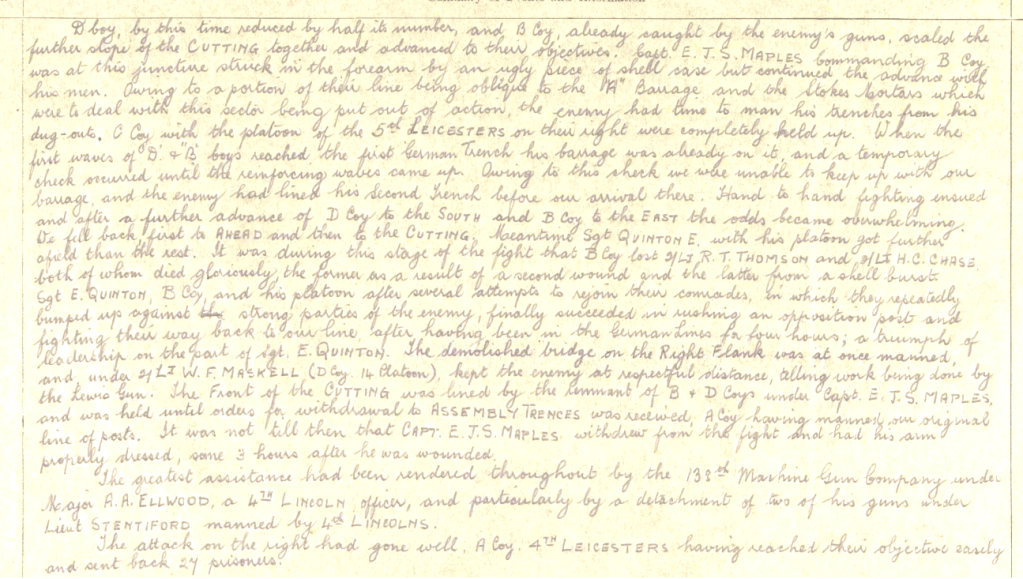 D boy, by this time reduced by half its number, and B Coy, already caught by the enemy's guns, scaled the
further slope of the CUTTING together and advanced to their objectives. Capt. E.J.S. MAPLES commanding B Coy
was at this juncture struck in the forearm by an ugly piece of shell case but continued the advance with
his men. Owing to a portion of their line being oblique to the "A" Barrage and the Stokes Mortars which
were to deal with this sector being put out of action, the enemy had time to man his trenches from his
dug-outs. C Coy with the platoon of the 5th LEICESTERS on their right were completely held up. When the
first waves of 'D' & 'B' boys reached the first German Trench his barrage was already on it, and a temporary
check occurred until the reinforcing waves came up. Owing to this check we were unable to keep up with our
barrage, and the enemy had lined his Second Trench before our arrival there. Hand to hand fighting ensued
and after a further advance of D Coy to the SOUTH and B Coy to the EAST the odds became overwhelming.
We fell back first to AHEAD and then to the CUTTING. Meantime Sgt QUINTON E. with his platoon got further
afield than the rest. It was during this stage of the fight that B Coy lost 2/Lt R.T. THOMSON and 2/Lt H.C. CHASE
both of whom died gloriously, the former as a result of a second wound and the latter from a shell burst.
Sgt E. QUINTON, B Coy, and his platoon after several attempts to rejoin their comrades, in which they repeatedly
bumped up against strong parties of the enemy, finally succeeded in rushing an opposition post and
fighting their way back to our line after having been in the German Lines for four hours; a triumph of
leadership on the part of Sgt. E. QUINTON. The demolished bridge on the Right Flank was at once manned,
and, under 2/Lt W.F. MASKELL (D Coy. 14 Platoon), kept the enemy at respectful distance, telling work being done by
the Lewis Gun. The Front of the CUTTING was lined by the remnant of B & D Coys under Capt. E.J.S. MAPLES,
and was held until orders for withdrawal to ASSEMBLY TRENCES was received, A Coy having manned our original
line of posts. It was not till then that CAPT. E.J.S. MAPLES withdrew from the fight and had his arm
properly dressed, some 3 hours after he was wounded.
The greatest assistance had been rendered throughout by the 138th Machine Gun Company under
Major A.A. ELLWOOD, a 4TH LINCOLN officer, and particularly by a detachment of two of his guns under
Lieut STENTIFORD manned by 4th LINCOLNS.
The attack on the right had gone well, A Coy. 4TH LEICESTERS having reached their objective easily
and sent back 27 prisoners.